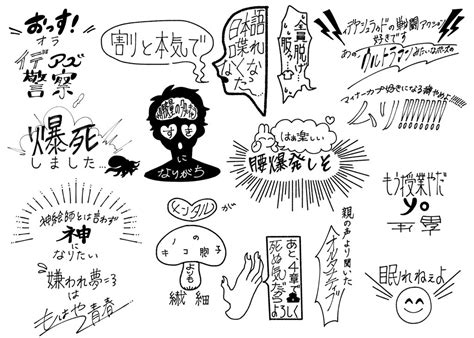 おっす!
オラ
イデアズ
警察
割と本気で
日本語
喋れ
なく
なった
全員脱げ
イデシュラッドの戦闘アクション
好きです
あの ウルトラマン みたいなポーズの
マイナーカプ好きになる癖やめた!!!!
ムリ!!!!!!!!!
爆死
しました…
すま
に
なりがち
はぁ楽しい
腰爆発しそ
もう授業やだ
神絵師とは言わず
神
になりたい
メンタル が
キノコの胞子
よりも
繊細
あと、4章で
死ぬ気だろ
よろしく
親の声より聞いた
眠れねぇよ
嫌われ夢=3
は
もはや青春